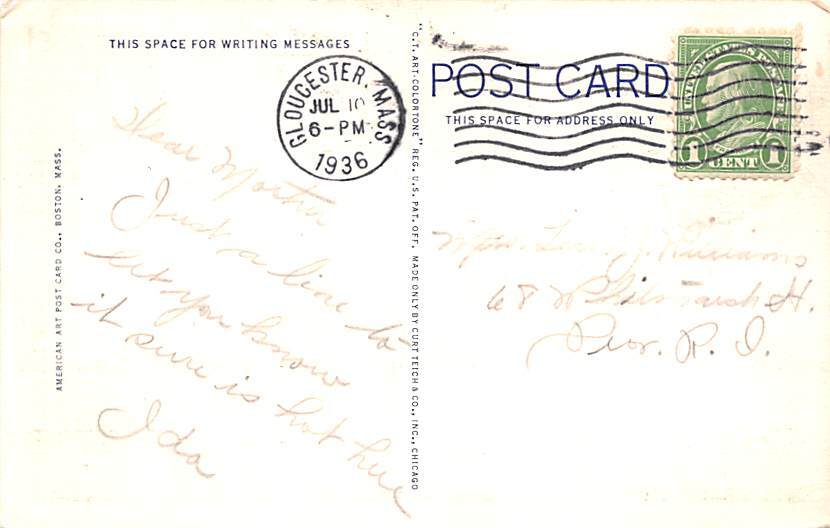 THIS SPACE FOR WRITING MESSAGES
GLOUCESTER, MASS
JUL 10
6-PM
1936
Dear
Just a line to
let you know
it sure is hot here
Ida
AMERICAN ART POST CARD CO., BOSTON, MASS.
"C.T. ART-COLORTONE" REG. U.S. PAT. OFF. MADE ONLY BY CURT TEICH & CO., INC., CHICAGO
POST CARD
THIS SPACE FOR ADDRESS ONLY
UNITED STATES POSTAGE
1 CENT 1
Williams
68 Whitmarsh St.
Prov. R. I.